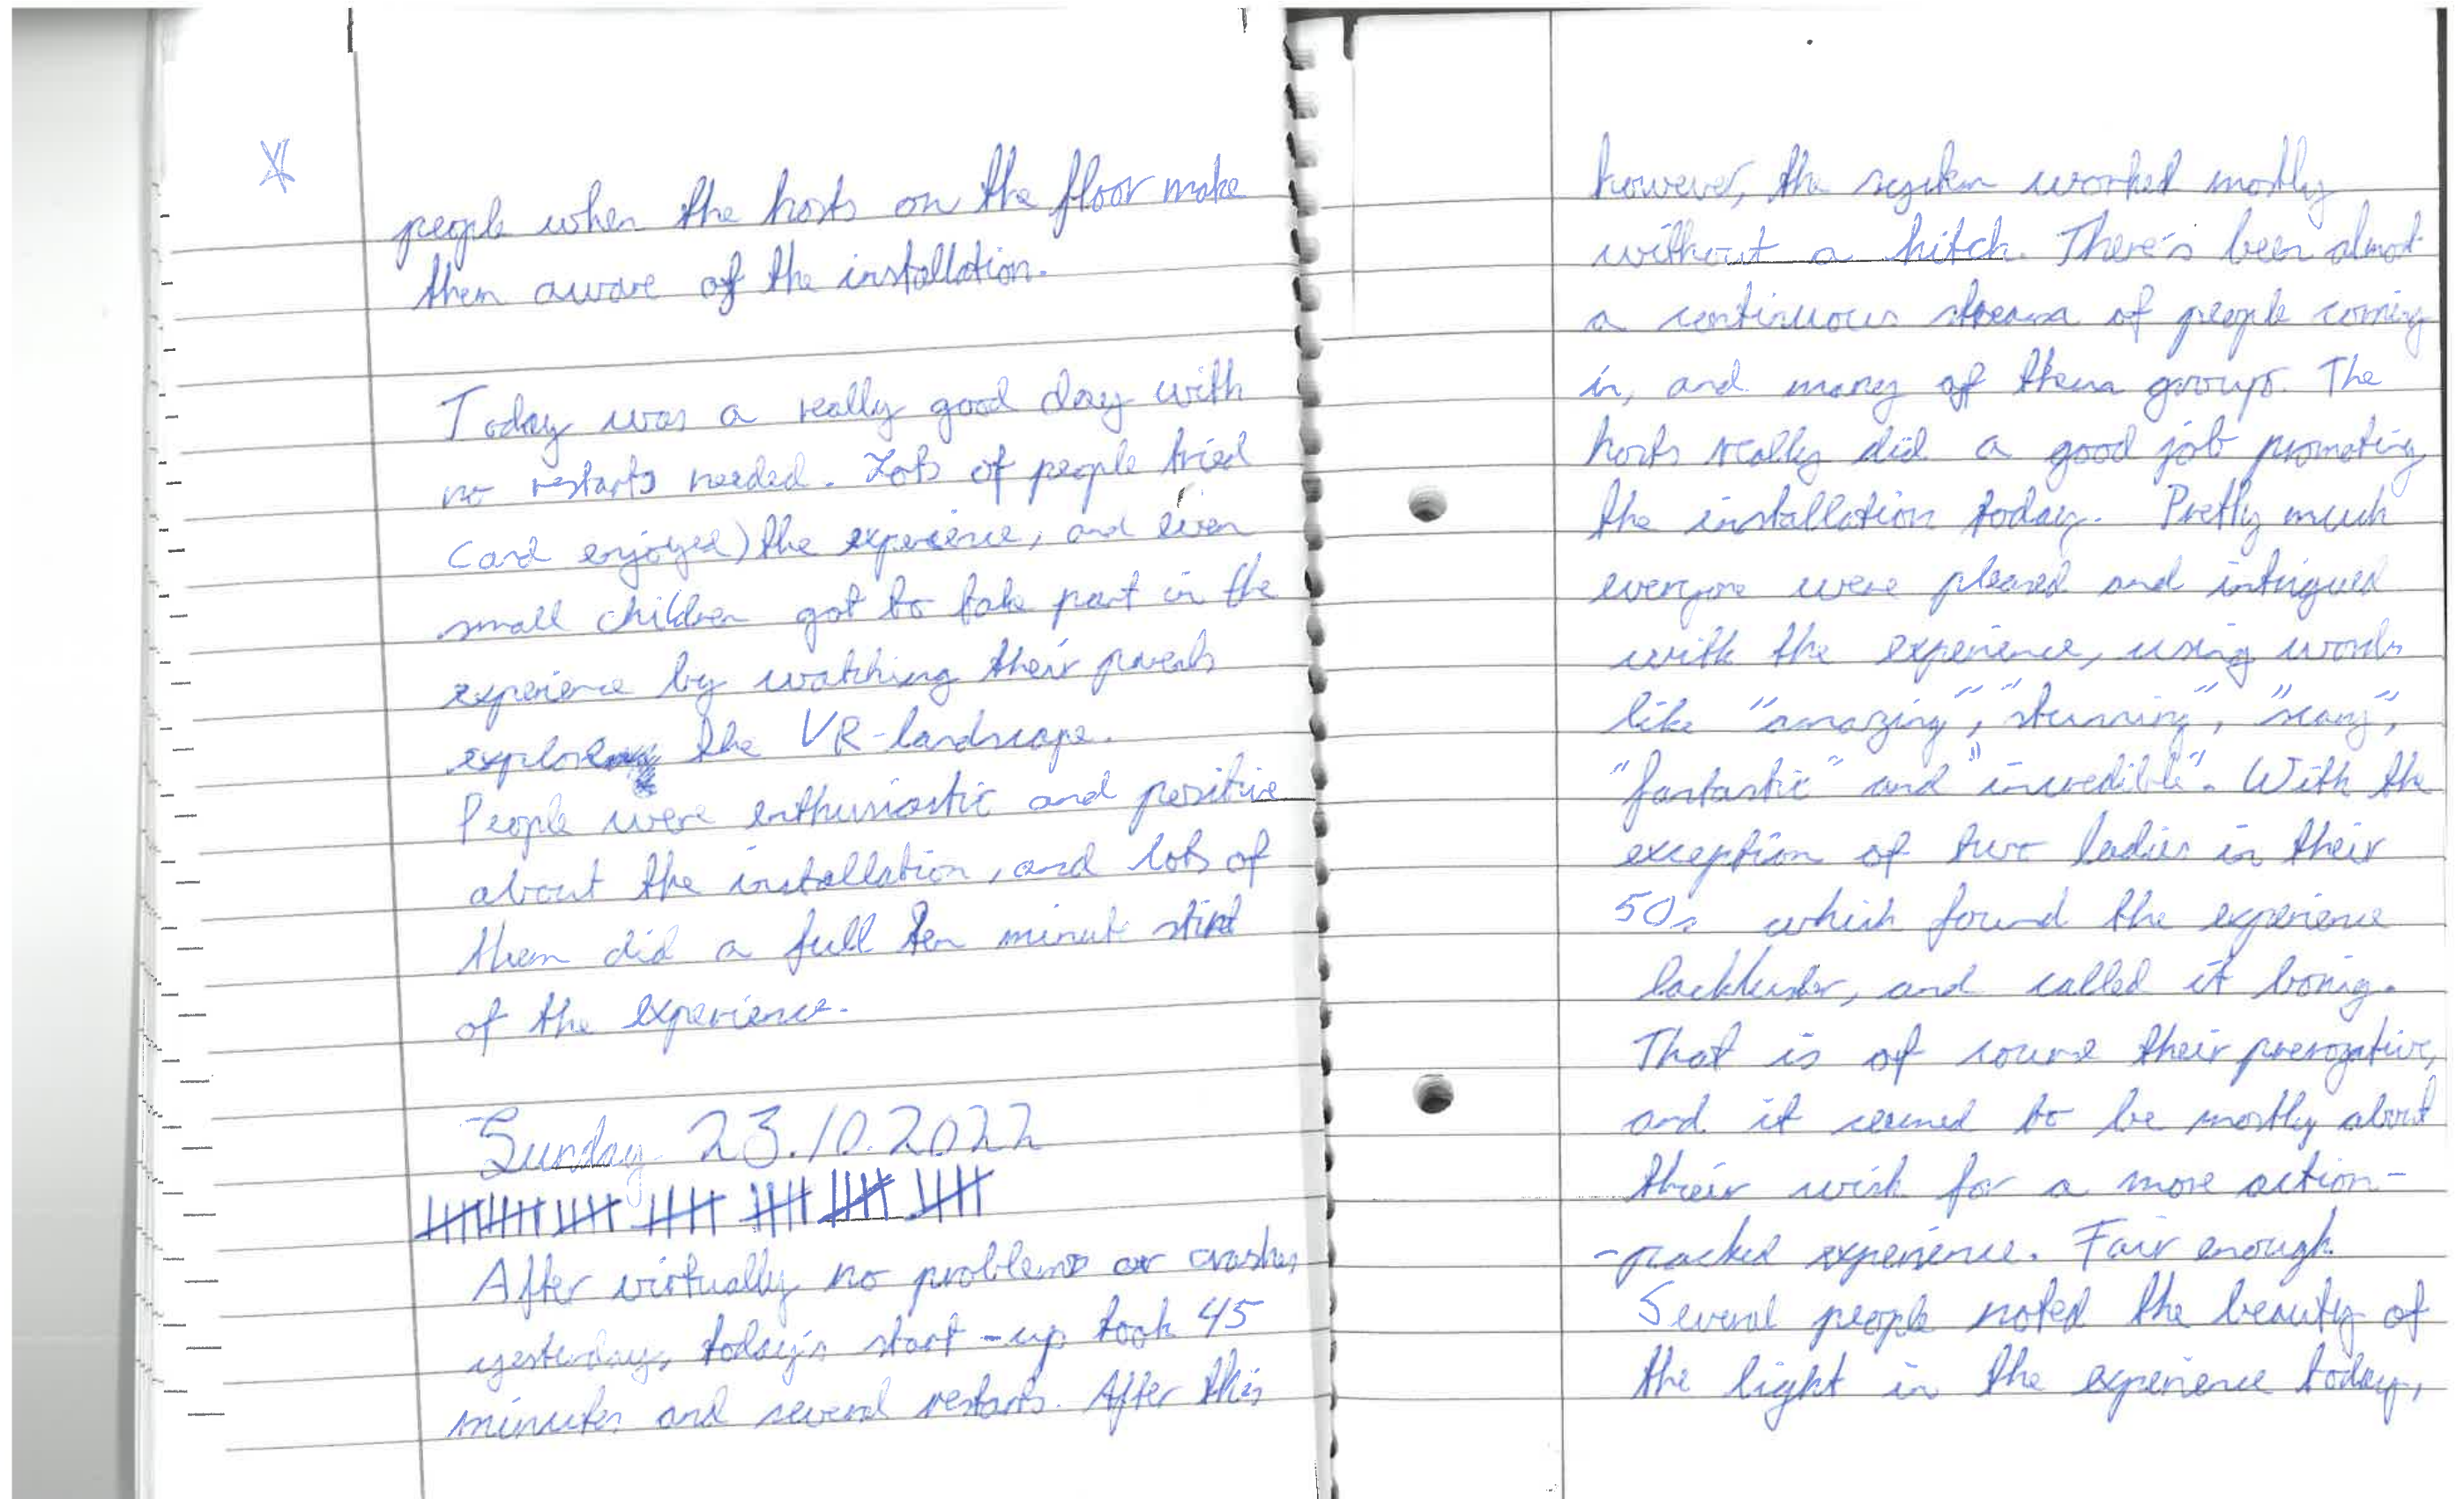 people when the hosts on the floor make
them aware of the installation.
Today was a really good day with
no restarts needed. Lots of people tried
(and enjoyed) the experience, and even
small children got to take part in the
experience by watching their parents
explore the VR-landscape.
People were enthusiastic and positive
about the installation, and lots of
them did a full ten minute stint
of the experience.
Sunday 23.10.2022
After virtually no problems or crashes
yesterday, today's start-up took 45
minutes and several restarts. After this
however, the system worked mostly
without a hitch. There's been almost
a continuous stream of people coming
in, and many of them groups. The
hosts really did a good job promoting
the installation today. Pretty much
everyone were pleased and intrigued
with the experience, using words
like "amazing", "stunning", "scary",
"fantastic" and "incredible". With the
exception of two ladies in their
50s which found the experience
lackluster, and called it boring.
That is of course their prerogative,
and it seemed to be mostly about
their wish for a more action-
-packed experience. Fair enough.
Several people noted the beauty of
the light in the experience today,